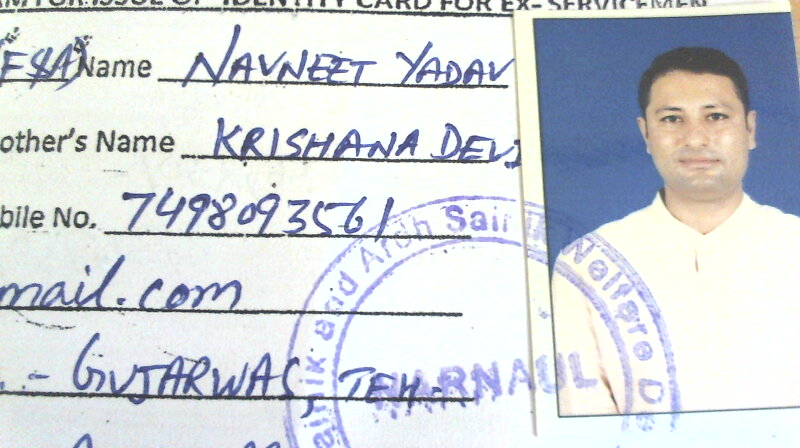 FOR ISSUE OF IDENTITY CARD FOR EX- SERVICEMEN
Name NAVNEET YADAV
other's Name KRISHANA DEVI
bile No. 7498093561
mail.com
- GUJARWAS, TEH-
ainik and Ardh Sainik Welfare
NARNAUL